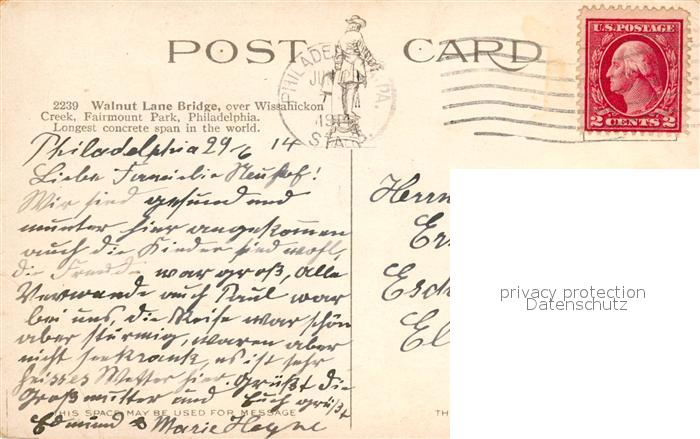 POST CARD
PHILADELPHIA, PA.
U.S. POSTAGE
2 CENTS 2
2239 Walnut Lane Bridge, over Wissahickon
Creek, Fairmount Park, Philadelphia.
Longest concrete span in the world.
Philadelphia 29/6 14
Liebe Familie Neuhof!
Wir sind gesund und
munter hier angekommen
auch die Kinder sind wohl,
die Freude war groß, alle
Verwande auch Paul war
bei uns, die Reise war schön
aber stürmig, waren aber
nicht seekrank, es ist sehr
heisses Wetter hier. Grüßt die
Großmutter und Euch grüßt
Edmund & Marie Heyne
THIS SPACE MAY BE USED FOR MESSAGE
TH
Herrn
Er
Esch
El
privacy protection
Datenschutz